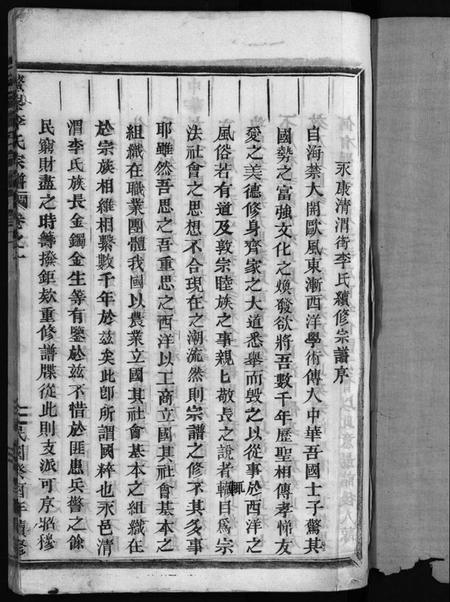 永康清渭街李氏續修宗譜序
自海禁大開歐風東漸西洋學術傳入中華吾國士子驚其
國勢之富強文化之煥發欲將吾數千年歷聖相傳孝悌友
愛之美德修身齊家之大道悉舉而毀之以從事於西洋之
風俗若有道及敦宗睦族之事親上敬長之說者輒目爲宗
法社會之思想不合現在之潮流然則宗譜之修不其多事
耶雖然吾思之吾重思之西洋以工商立國其社會基本之
組織在職業團體我國以農業立國其社會基本之組織在
於宗族相維相繫數千年於茲矣此卽所謂國粹也永邑清
渭李氏族長金鐲金生等有鑒於茲不惜於匪患兵警之餘
民窮財盡之時籌撥鉅欵重修譜牒從此則支派可序昭穆
李氏宗譜 卷之一
民國癸酉年續修